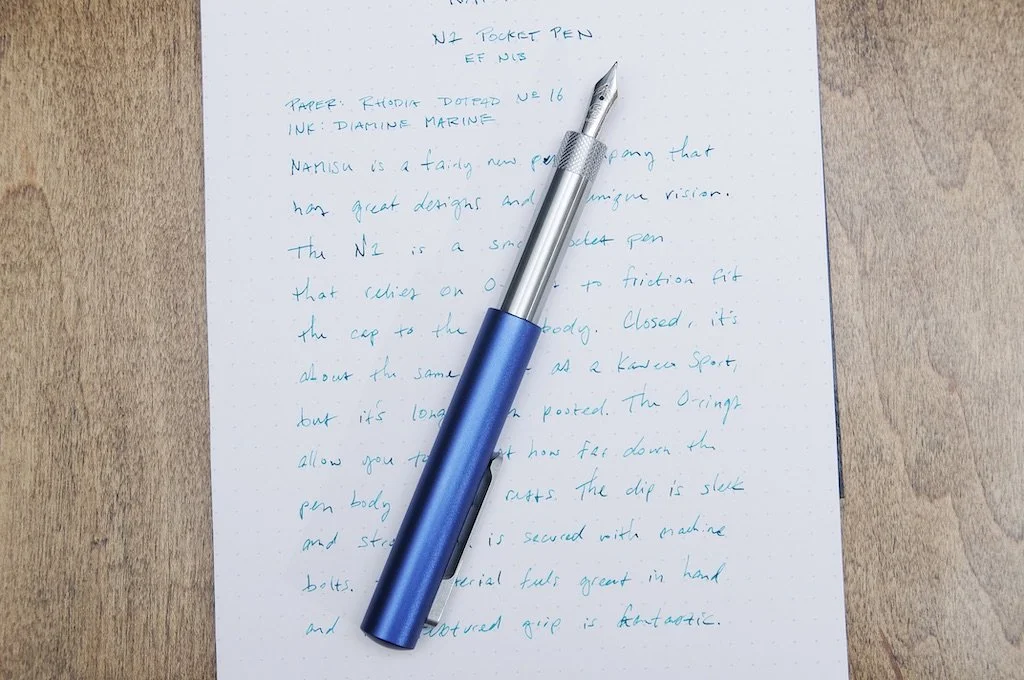 N1 POCKET PEN
EF NIB
PAPER: RHODIA DOTPAD № 16
INK: DIAMINE MARINE
NAMISU is a fairly new that
has great designs and unique vision.
The N1 is a pen
that relies on to friction fit
the cap to the body. Closed, it's
about the same as a Kaweco Sport,
but it's posted. The O-rings
allow you how far down the
pen body rests. The clip is sleek
and is secured with machine
bolts. feels great in hand
and grip is fantastic.